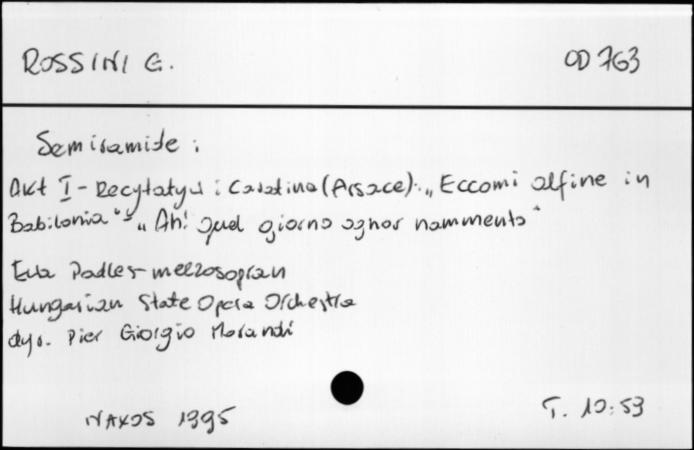 ROSSINI G. OD 763
Semiramide :
Akt I - Recytatyw i Cavatina (Arsace): „Eccomi alfine in
Babilonia" - „Ah! quel giorno ognor rammento"
Ewa Podleś - mezzosopran
Hungarian State Opera Orchestra
dyr. Pier Giorgio Morandi
NAXOS 1995 T. 10:53